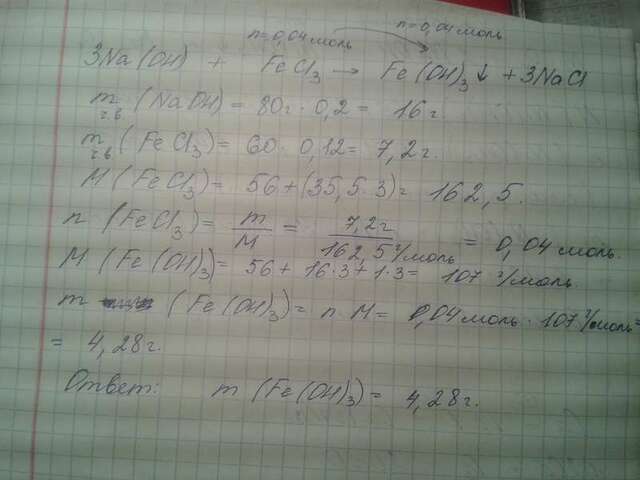 n=0,04 моль n=0,04 моль
3Na(OH) + FeCl₃ → Fe(OH)₃↓ + 3NaCl
m ч.в (NaOH) = 80г · 0,2 = 16 г.
m ч.в (FeCl₃) = 60 · 0,12 = 7,2 г.
M (FeCl₃) = 56 + (35,5 · 3) = 162,5.
n (FeCl₃) = m/M = 7,2г/162,5 г/моль = 0,04 моль.
M (Fe(OH)₃) = 56 + 16·3 + 1·3 = 107 г/моль.
m (Fe(OH)₃) = n · M = 0,04 моль · 107 г/моль =
= 4,28 г.
Ответ: m (Fe(OH)₃) = 4,28 г.